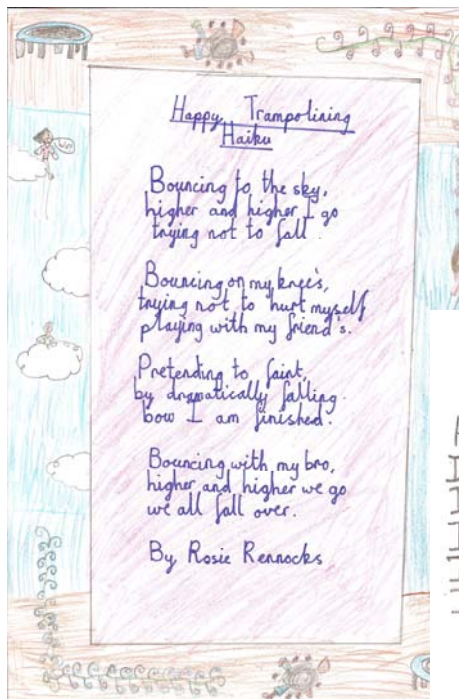 Happy Trampolining
Haiku
Bouncing to the sky,
higher and higher I go
trying not to fall.
Bouncing on my knee's,
trying not to hurt myself
playing with my friend's.
Pretending to faint,
by dramatically falling.
bow I am finished.
Bouncing with my bro,
higher and higher we go
we all fall over.
By Rosie Rennocks